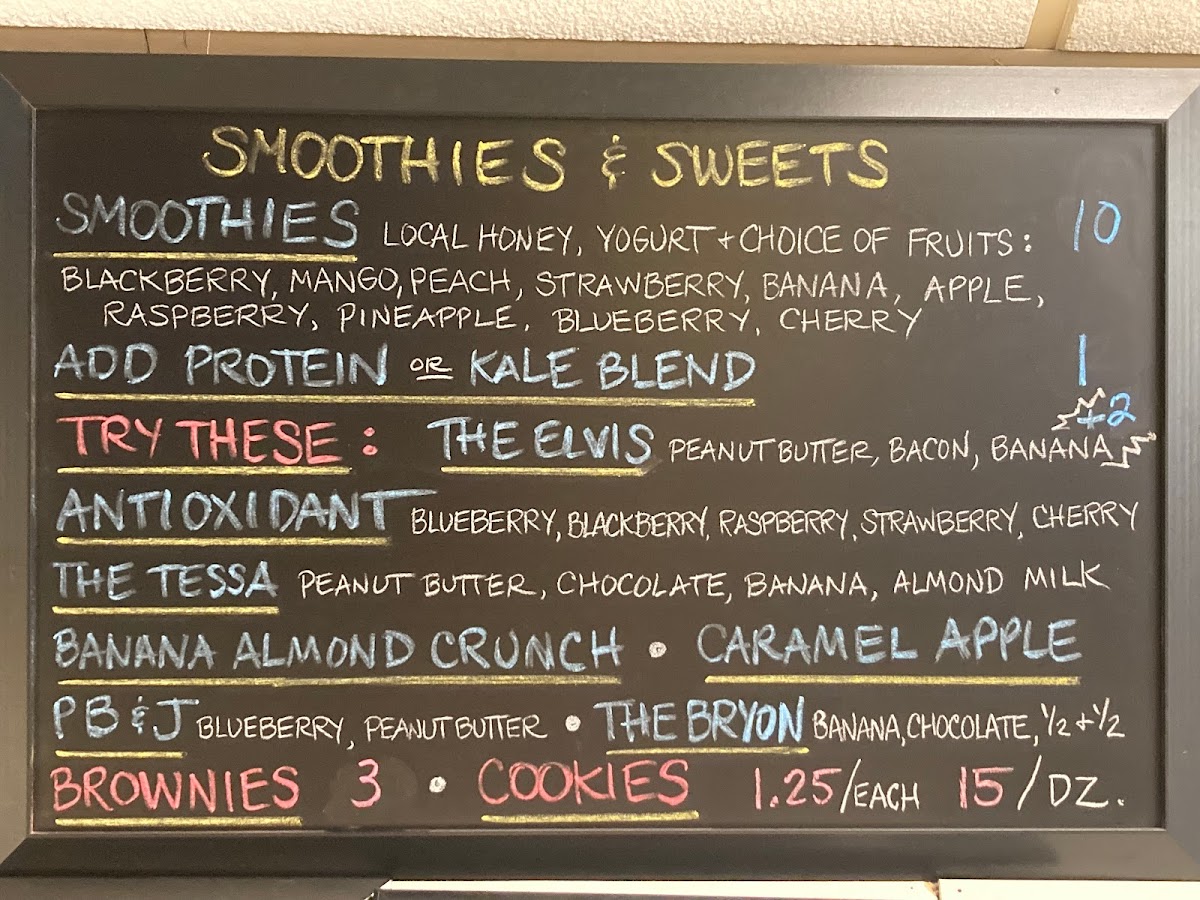 SMOOTHIES & SWEETS
SMOOTHIES LOCAL HONEY, YOGURT + CHOICE OF FRUITS: 10
BLACKBERRY, MANGO, PEACH, STRAWBERRY, BANANA, APPLE,
RASPBERRY, PINEAPPLE, BLUEBERRY, CHERRY
ADD PROTEIN OR KALE BLEND 1
TRY THESE: THE ELVIS PEANUT BUTTER, BACON, BANANA +2
ANTIOXIDANT BLUEBERRY, BLACKBERRY, RASPBERRY, STRAWBERRY, CHERRY
THE TESSA PEANUT BUTTER, CHOCOLATE, BANANA, ALMOND MILK
BANANA ALMOND CRUNCH • CARAMEL APPLE
PB & J BLUEBERRY, PEANUT BUTTER • THE BRYON BANANA, CHOCOLATE, 1/2 + 1/2
BROWNIES 3 • COOKIES 1.25/EACH 15/DZ.